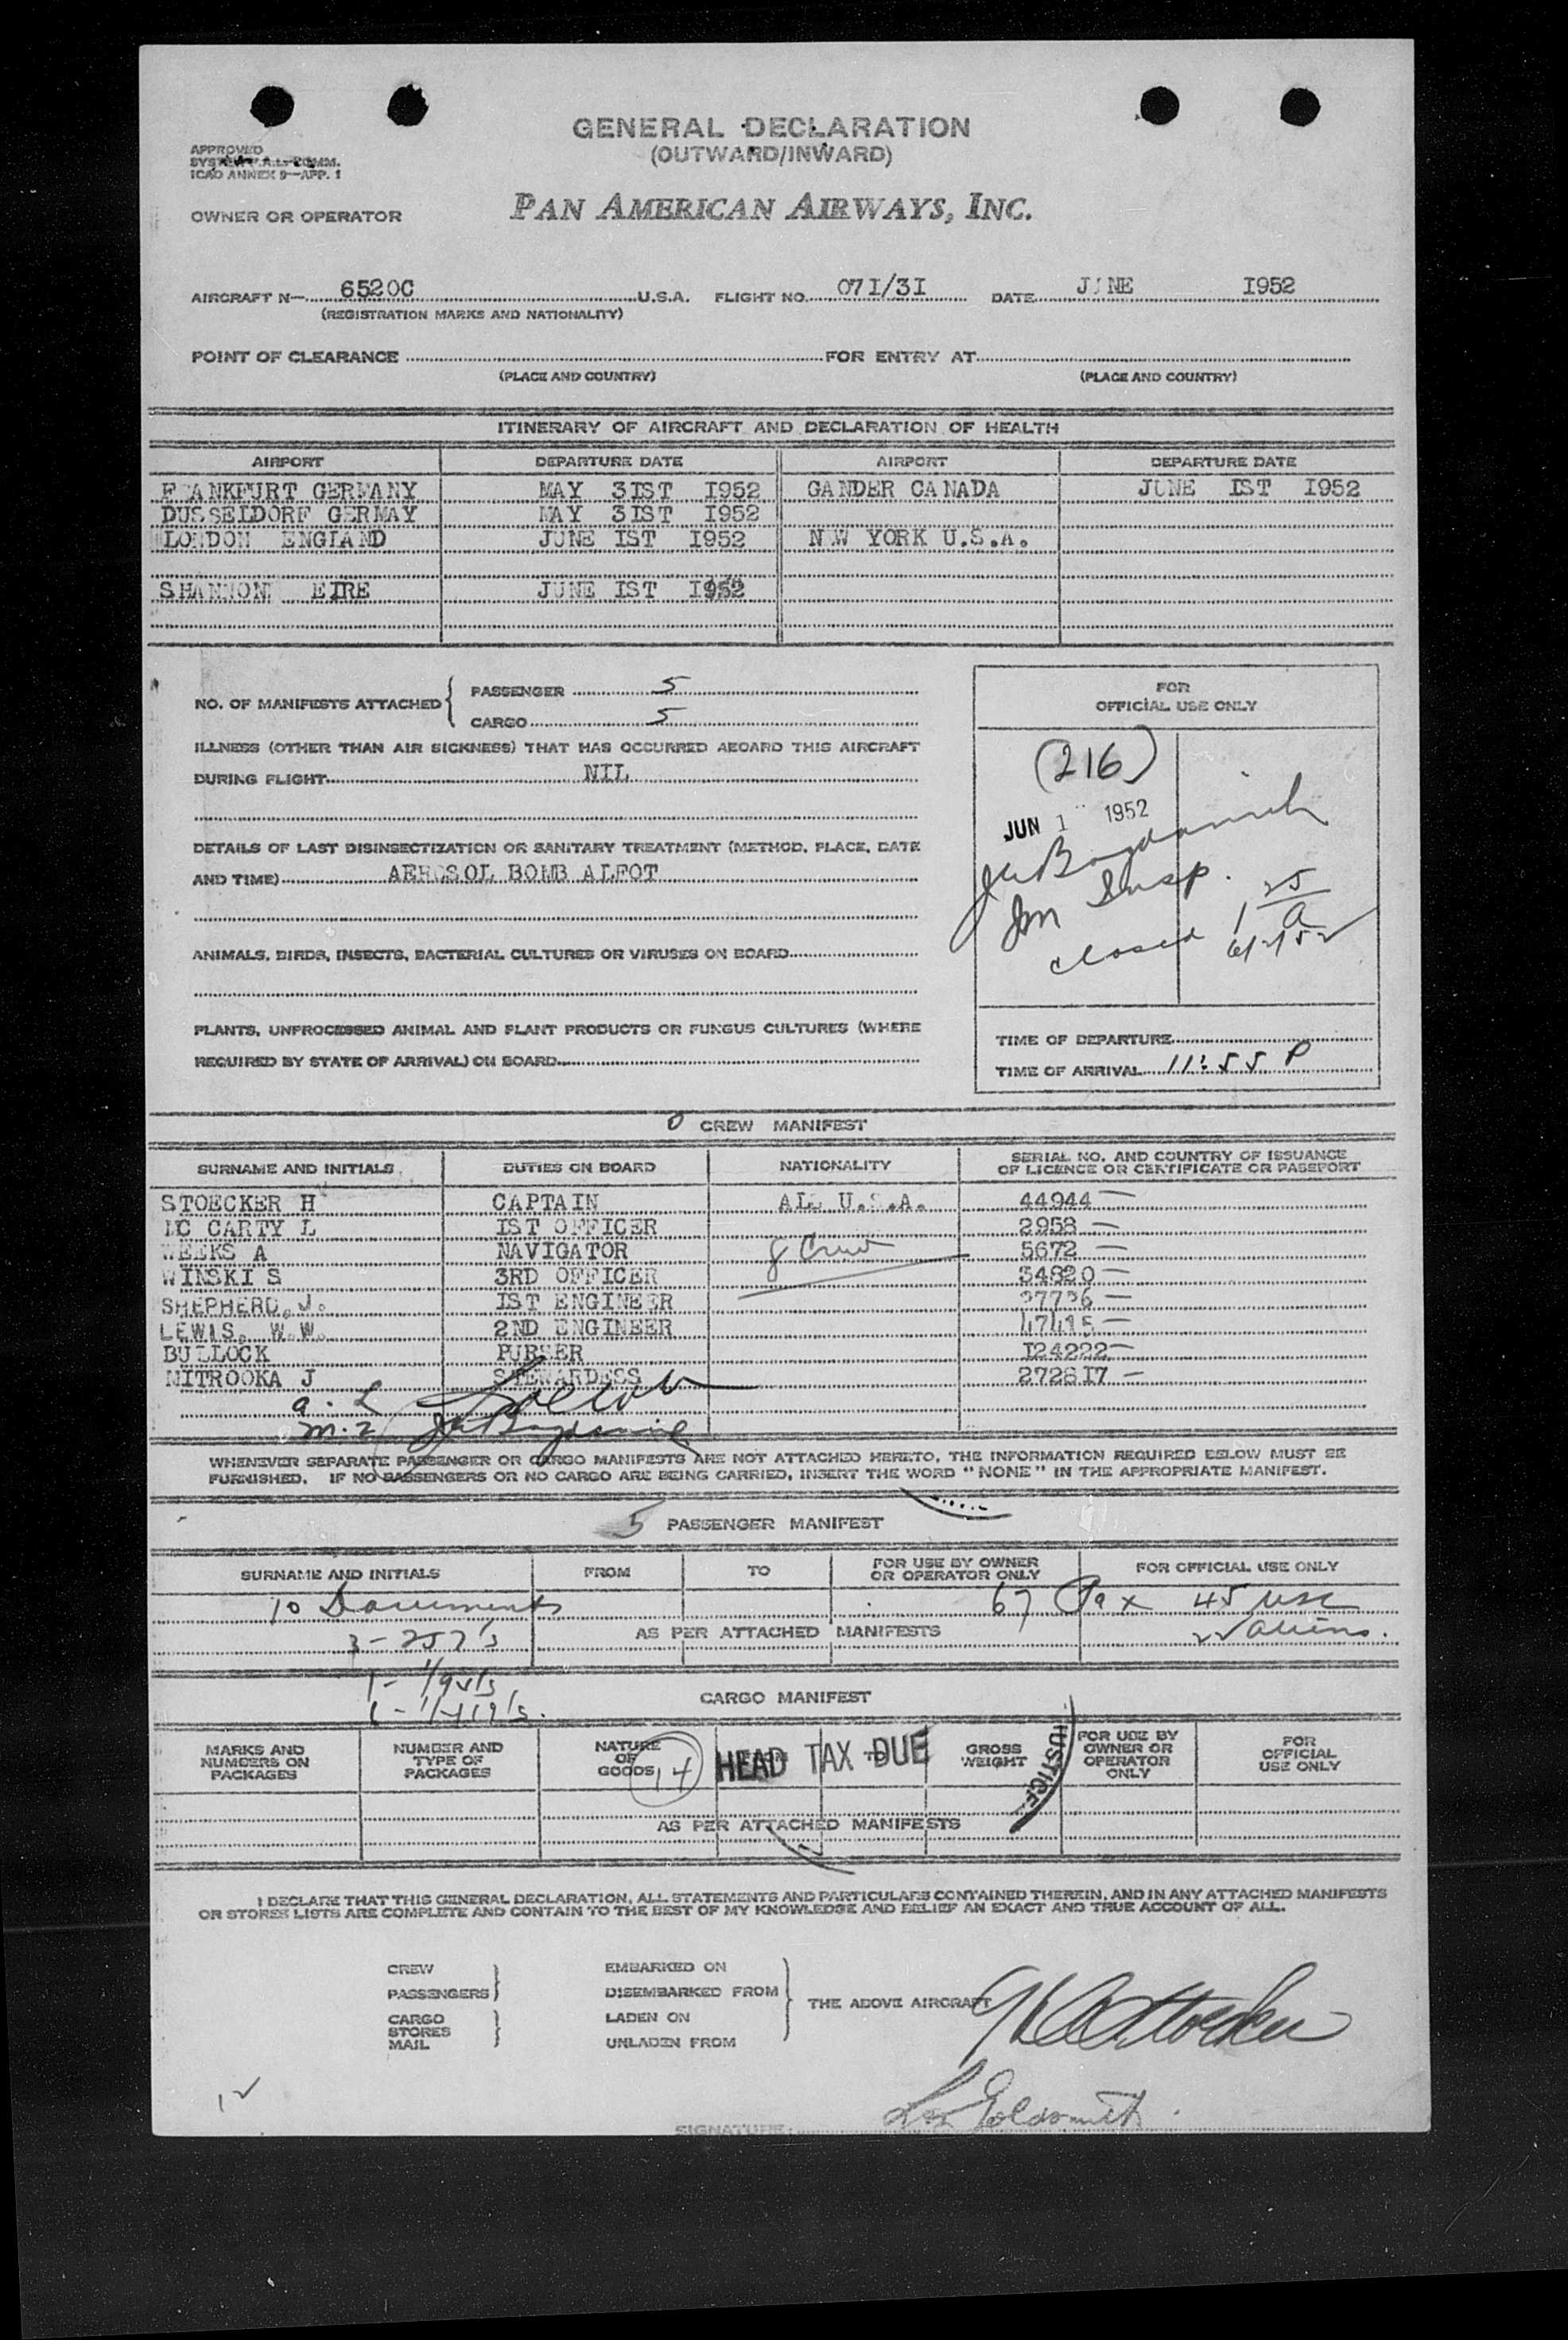 GENERAL DECLARATION
(OUTWARD/INWARD)
APPROVED
ICAO ANNEX 9—APP. 1
OWNER OR OPERATOR PAN AMERICAN AIRWAYS, INC.
AIRCRAFT N— 6520C U.S.A. FLIGHT NO. 07I/3I DATE J NE I952
(REGISTRATION MARKS AND NATIONALITY)
POINT OF CLEARANCE FOR ENTRY AT
(PLACE AND COUNTRY) (PLACE AND COUNTRY)
ITINERARY OF AIRCRAFT AND DECLARATION OF HEALTH
AIRPORT DEPARTURE DATE AIRPORT DEPARTURE DATE
FRANKFURT GERMANY MAY 3IST I952 GANDER CANADA JUNE IST I952
DUSSELDORF GERMAY MAY 3IST I952
LONDON ENGLAND JUNE IST I952 N W YORK U.S.A.
SHANNON EIRE JUNE IST I952
NO. OF MANIFESTS ATTACHED { PASSENGER 5
CARGO 5
ILLNESS (OTHER THAN AIR SICKNESS) THAT HAS OCCURRED ABOARD THIS AIRCRAFT
DURING FLIGHT NIL
DETAILS OF LAST DISINSECTIZATION OR SANITARY TREATMENT (METHOD, PLACE, DATE
AND TIME) AEROSOL BOMB ALFOT
ANIMALS, BIRDS, INSECTS, BACTERIAL CULTURES OR VIRUSES ON BOARD
PLANTS, UNPROCESSED ANIMAL AND PLANT PRODUCTS OR FUNGUS CULTURES (WHERE
REQUIRED BY STATE OF ARRIVAL) ON BOARD
FOR
OFFICIAL USE ONLY
(216)
JUN 1 1952
Im Insp.
closed
TIME OF DEPARTURE
TIME OF ARRIVAL 11:55 P
CREW MANIFEST
SURNAME AND INITIALS DUTIES ON BOARD NATIONALITY SERIAL NO. AND COUNTRY OF ISSUANCE
OF LICENCE OR CERTIFICATE OR PASSPORT
STOECKER H CAPTAIN ALL U.S.A. 44944 —
MC CARTY L IST OFFICER 2958 —
WEEKS A NAVIGATOR 8 Crew 5672 —
WINSKI S 3RD OFFICER 34820 —
SHEPHERD, J. IST ENGINEER 27726 —
LEWIS, W.W. 2ND ENGINEER 47415 —
BULLOCK PURSER I24222 —
MITROOKA J STEWARDESS 2728I7 —
WHENEVER SEPARATE PASSENGER OR CARGO MANIFESTS ARE NOT ATTACHED HERETO, THE INFORMATION REQUIRED BELOW MUST BE
FURNISHED. IF NO PASSENGERS OR NO CARGO ARE BEING CARRIED, INSERT THE WORD "NONE" IN THE APPROPRIATE MANIFEST.
5 PASSENGER MANIFEST
SURNAME AND INITIALS FROM TO FOR USE BY OWNER
OR OPERATOR ONLY FOR OFFICIAL USE ONLY
10 Documents 67 Pax 45 USC
3 - 257's AS PER ATTACHED MANIFESTS 22 aliens.
CARGO MANIFEST
MARKS AND
NUMBERS ON
PACKAGES
NUMBER AND
TYPE OF
PACKAGES
NATURE
OF
GOODS
14 HEAD TAX DUE
GROSS
WEIGHT
JUSTICE
FOR USE BY
OWNER OR
OPERATOR
ONLY
FOR
OFFICIAL
USE ONLY
AS PER ATTACHED MANIFESTS
I DECLARE THAT THIS GENERAL DECLARATION, ALL STATEMENTS AND PARTICULARS CONTAINED THEREIN, AND IN ANY ATTACHED MANIFESTS
OR STORES LISTS ARE COMPLETE AND CONTAIN TO THE BEST OF MY KNOWLEDGE AND BELIEF AN EXACT AND TRUE ACCOUNT OF ALL.
CREW EMBARKED ON
PASSENGERS DISEMBARKED FROM
THE ABOVE AIRCRAFT
CARGO LADEN ON
STORES
MAIL UNLADEN FROM
Goldsmith
SIGNATURE